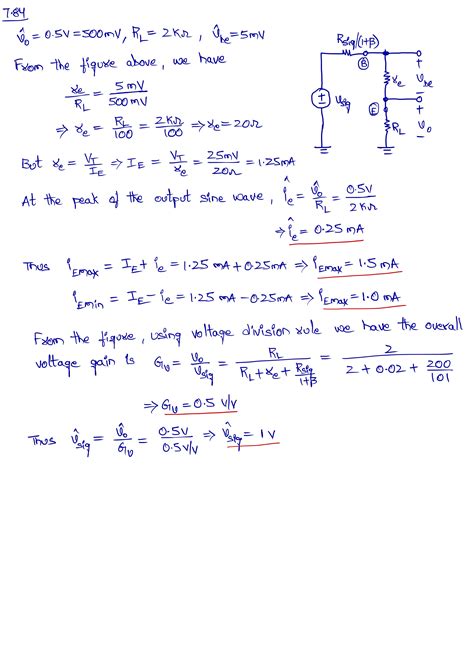 7.84
v̂o = 0.5V = 500mV, RL = 2KΩ, v̂be = 5mV
From the figure above, we have
re/RL = 5mV/500mV
⇒ re = RL/100 = 2KΩ/100 ⇒ re = 20Ω
But re = VT/IE ⇒ IE = VT/re = 25mV/20Ω = 1.25mA
At the peak of the output sine wave, îe = v̂o/RL = 0.5V/2KΩ
⇒ îe = 0.25 mA
Thus iEmax = IE + îe = 1.25 mA + 0.25mA ⇒ iEmax = 1.5 mA
iEmin = IE - îe = 1.25 mA - 0.25mA ⇒ iEmax = 1.0 mA
From the figure, using voltage division rule we have the overall
voltage gain is Gv = vo/vsig = RL/(RL + re + Rsig/(1+β)) = 2/(2 + 0.02 + 200/101)
⇒ Gv = 0.5 V/V
Thus v̂sig = v̂o/Gv = 0.5V/0.5V/V ⇒ v̂sig = 1V
Rsig/(1+β)
B
+
re
vbe
-
vsig
E
+
RL
vo
-